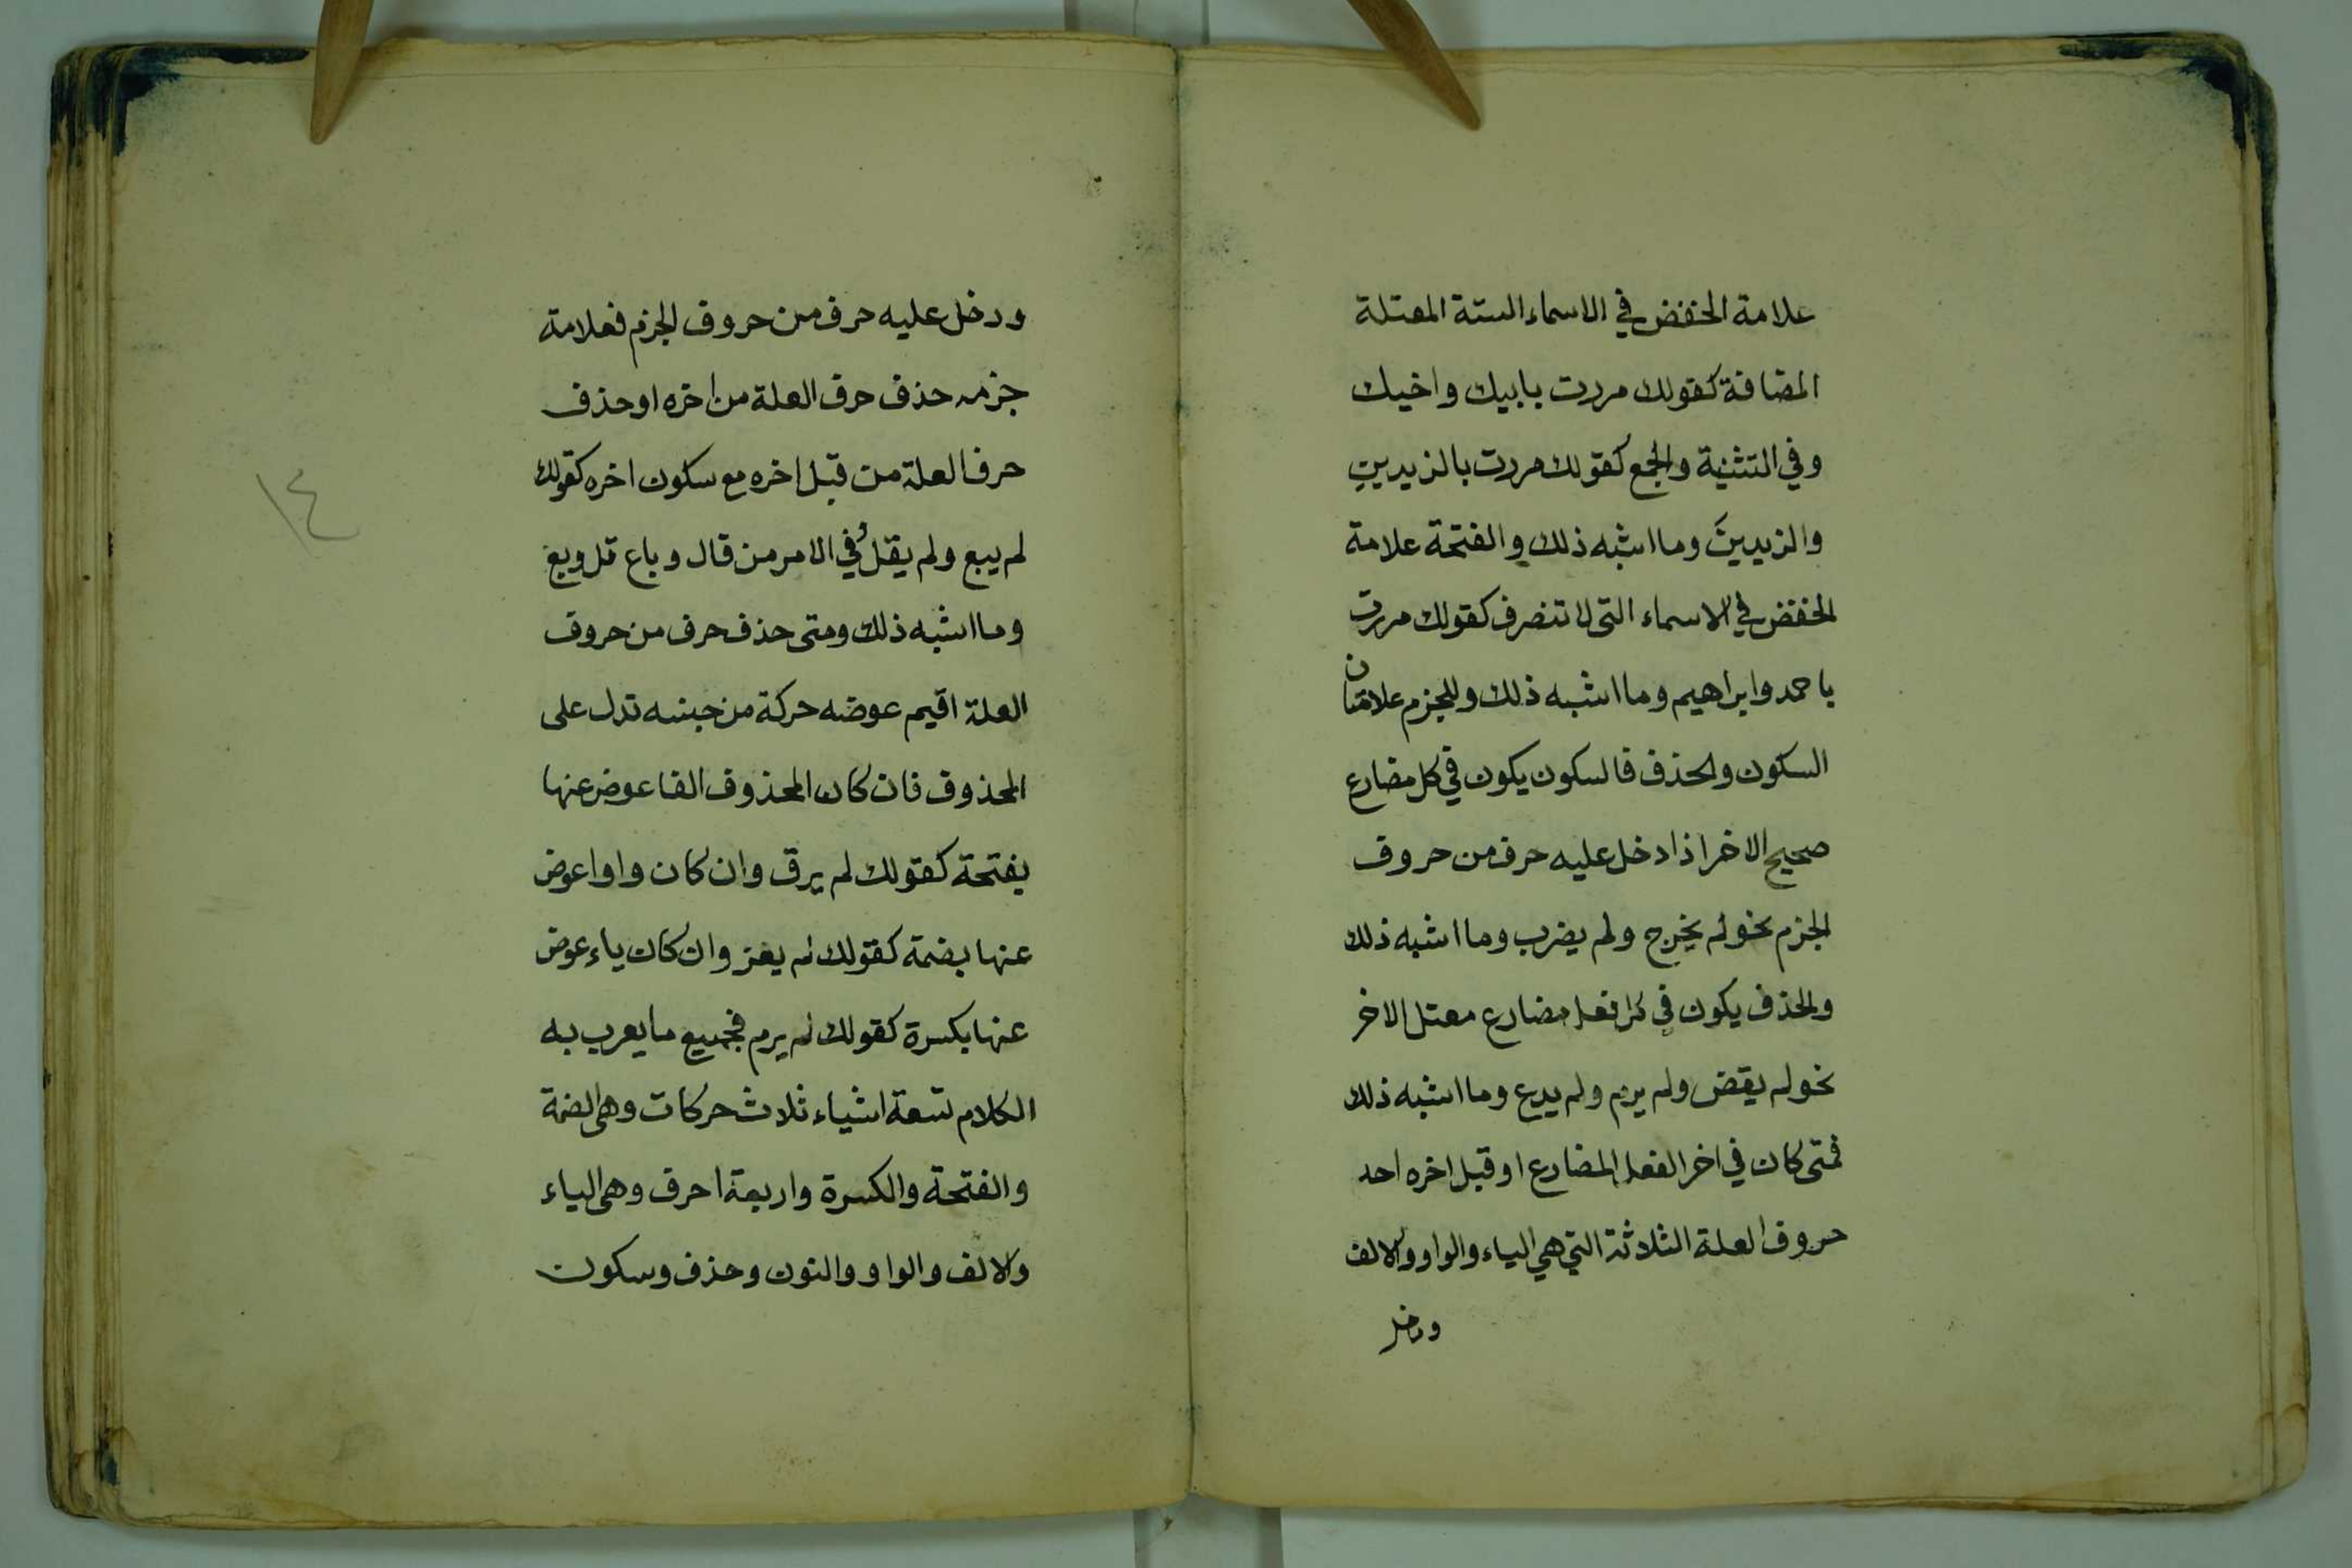 علامة الخفض في الاسماء الستة المعتلة
المضافة كقولك مررت بابيك واخيك
وفي التثنية والجمع كقولك مررت بالزيدينِ
والزيدينَ وما اشبه ذلك والفتحة علامة
الخفض في الاسماء التى لا تنصرف كقولك مررت
باحمد وابراهيم وما اشبه ذلك وللجزم علامتان
السكون والحذف فالسكون يكون في كل مضارع
صحيح الاخر اذا دخل عليه حرف من حروف
الجزم نحو لم يخرج ولم يضرب وما اشبه ذلك
والحذف يكون في كل فعل مضارع معتل الاخر
نحو لم يقض ولم يرم ولم يدع وما اشبه ذلك
فمتى كان في اخر الفعل المضارع او قبل اخره احد
حروف العلة الثلاثة التي هي الياء والواو والالف
ودخل
ودخل عليه حرف من حروف الجزم فعلامة
جزمه حذف حرف العلة من اخره او حذف
حرف العلة من قبل اخره مع سكون اخره كقولك
لم يبع ولم يقل وفي الامر من قال وباع قل وبع
وما اشبه ذلك ومتى حذف حرف من حروف
العلة اقيم عوضه حركة من جنسه تدل على
المحذوف فان كان المحذوف الفا عوض عنها
بفتحة كقولك لم يرق وان كان واوا عوض
عنها بضمة كقولك لم يغز وان كان ياء عوض
عنها بكسرة كقولك لم يرم فجميع ما يعرب به
الكلام تسعة اشياء ثلاث حركات وهى الضمة
والفتحة والكسرة واربعة احرف وهى الياء
والالف والواو والنون وحذف وسكون
١٤